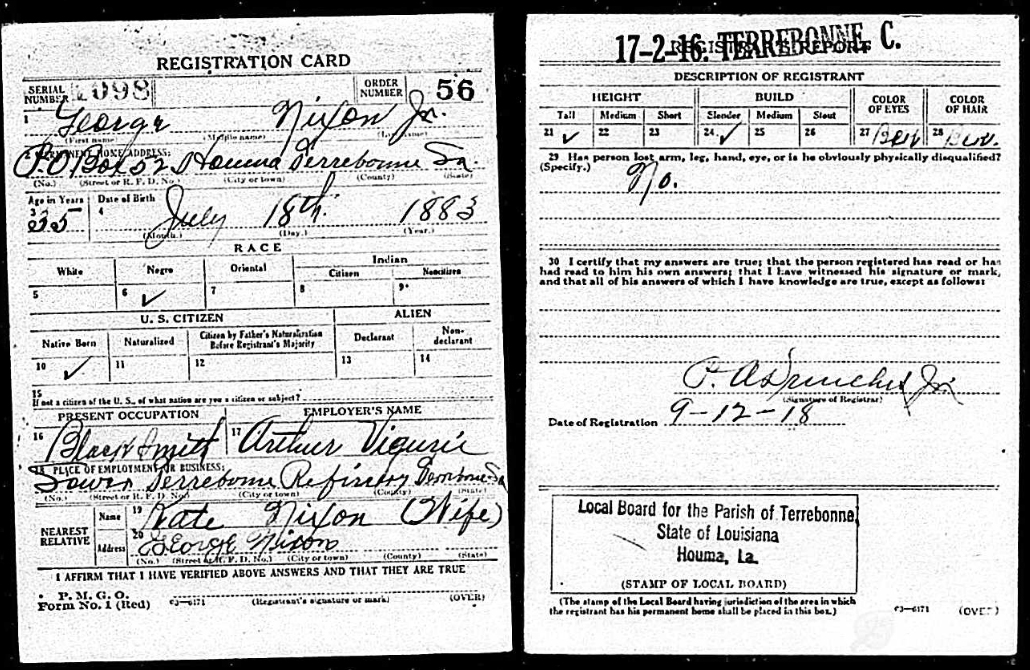 REGISTRATION CARD
SERIAL NUMBER 1098 ORDER NUMBER 56
1 George Nixon Jr.
(First name) (Middle name) (Last name)
2 PERMANENT HOME ADDRESS:
P.O Box 52 Houma Terrebonne La.
(No.) (Street or R. F. D. No.) (City or town) (County) (State)
Age in Years Date of Birth
3 35 4 July 18th. 1883
(Month.) (Day.) (Year.)
RACE
White Negro Oriental Indian
Citizen Noncitizen
5 6 ✓ 7 8 9
U. S. CITIZEN ALIEN
Native Born Naturalized Citizen by Father's Naturalization Before Registrant's Majority Declarant Non-declarant
10 ✓ 11 12 13 14
15
If not a citizen of the U. S., of what nation are you a citizen or subject?
PRESENT OCCUPATION EMPLOYER'S NAME
16 Black Smith 17 Arthur Vigurie
18 PLACE OF EMPLOYMENT OR BUSINESS:
Lower Terrebonne Refinery La
(No.) (Street or R. F. D. No.) (City or town) (County) (State)
NEAREST RELATIVE
Name 19 Kate Nixon (Wife)
Address 20 George Nixon
(No.) (Street or R. F. D. No.) (City or town) (County) (State)
I AFFIRM THAT I HAVE VERIFIED ABOVE ANSWERS AND THAT THEY ARE TRUE
P. M. G. O.
Form No. 1 (Red) 03—6171 (Registrant's signature or mark) (OVER)
17-2-16. TERREBONNE C.
REGISTRAR'S REPORT
DESCRIPTION OF REGISTRANT
HEIGHT BUILD COLOR OF EYES COLOR OF HAIR
Tall Medium Short Slender Medium Stout
21 ✓ 22 23 24 ✓ 25 26 27 28
29 Has person lost arm, leg, hand, eye, or is he obviously physically disqualified?
(Specify.) No.
30 I certify that my answers are true; that the person registered has read or has
had read to him his own answers; that I have witnessed his signature or mark,
and that all of his answers of which I have knowledge are true, except as follows:
(Signature of Registrar)
Date of Registration 9-12-18
Local Board for the Parish of Terrebonne
State of Louisiana
Houma, La.
(STAMP OF LOCAL BOARD)
(The stamp of the Local Board having jurisdiction of the area in which
the registrant has his permanent home shall be placed in this box.)
03—6171 (OVER)